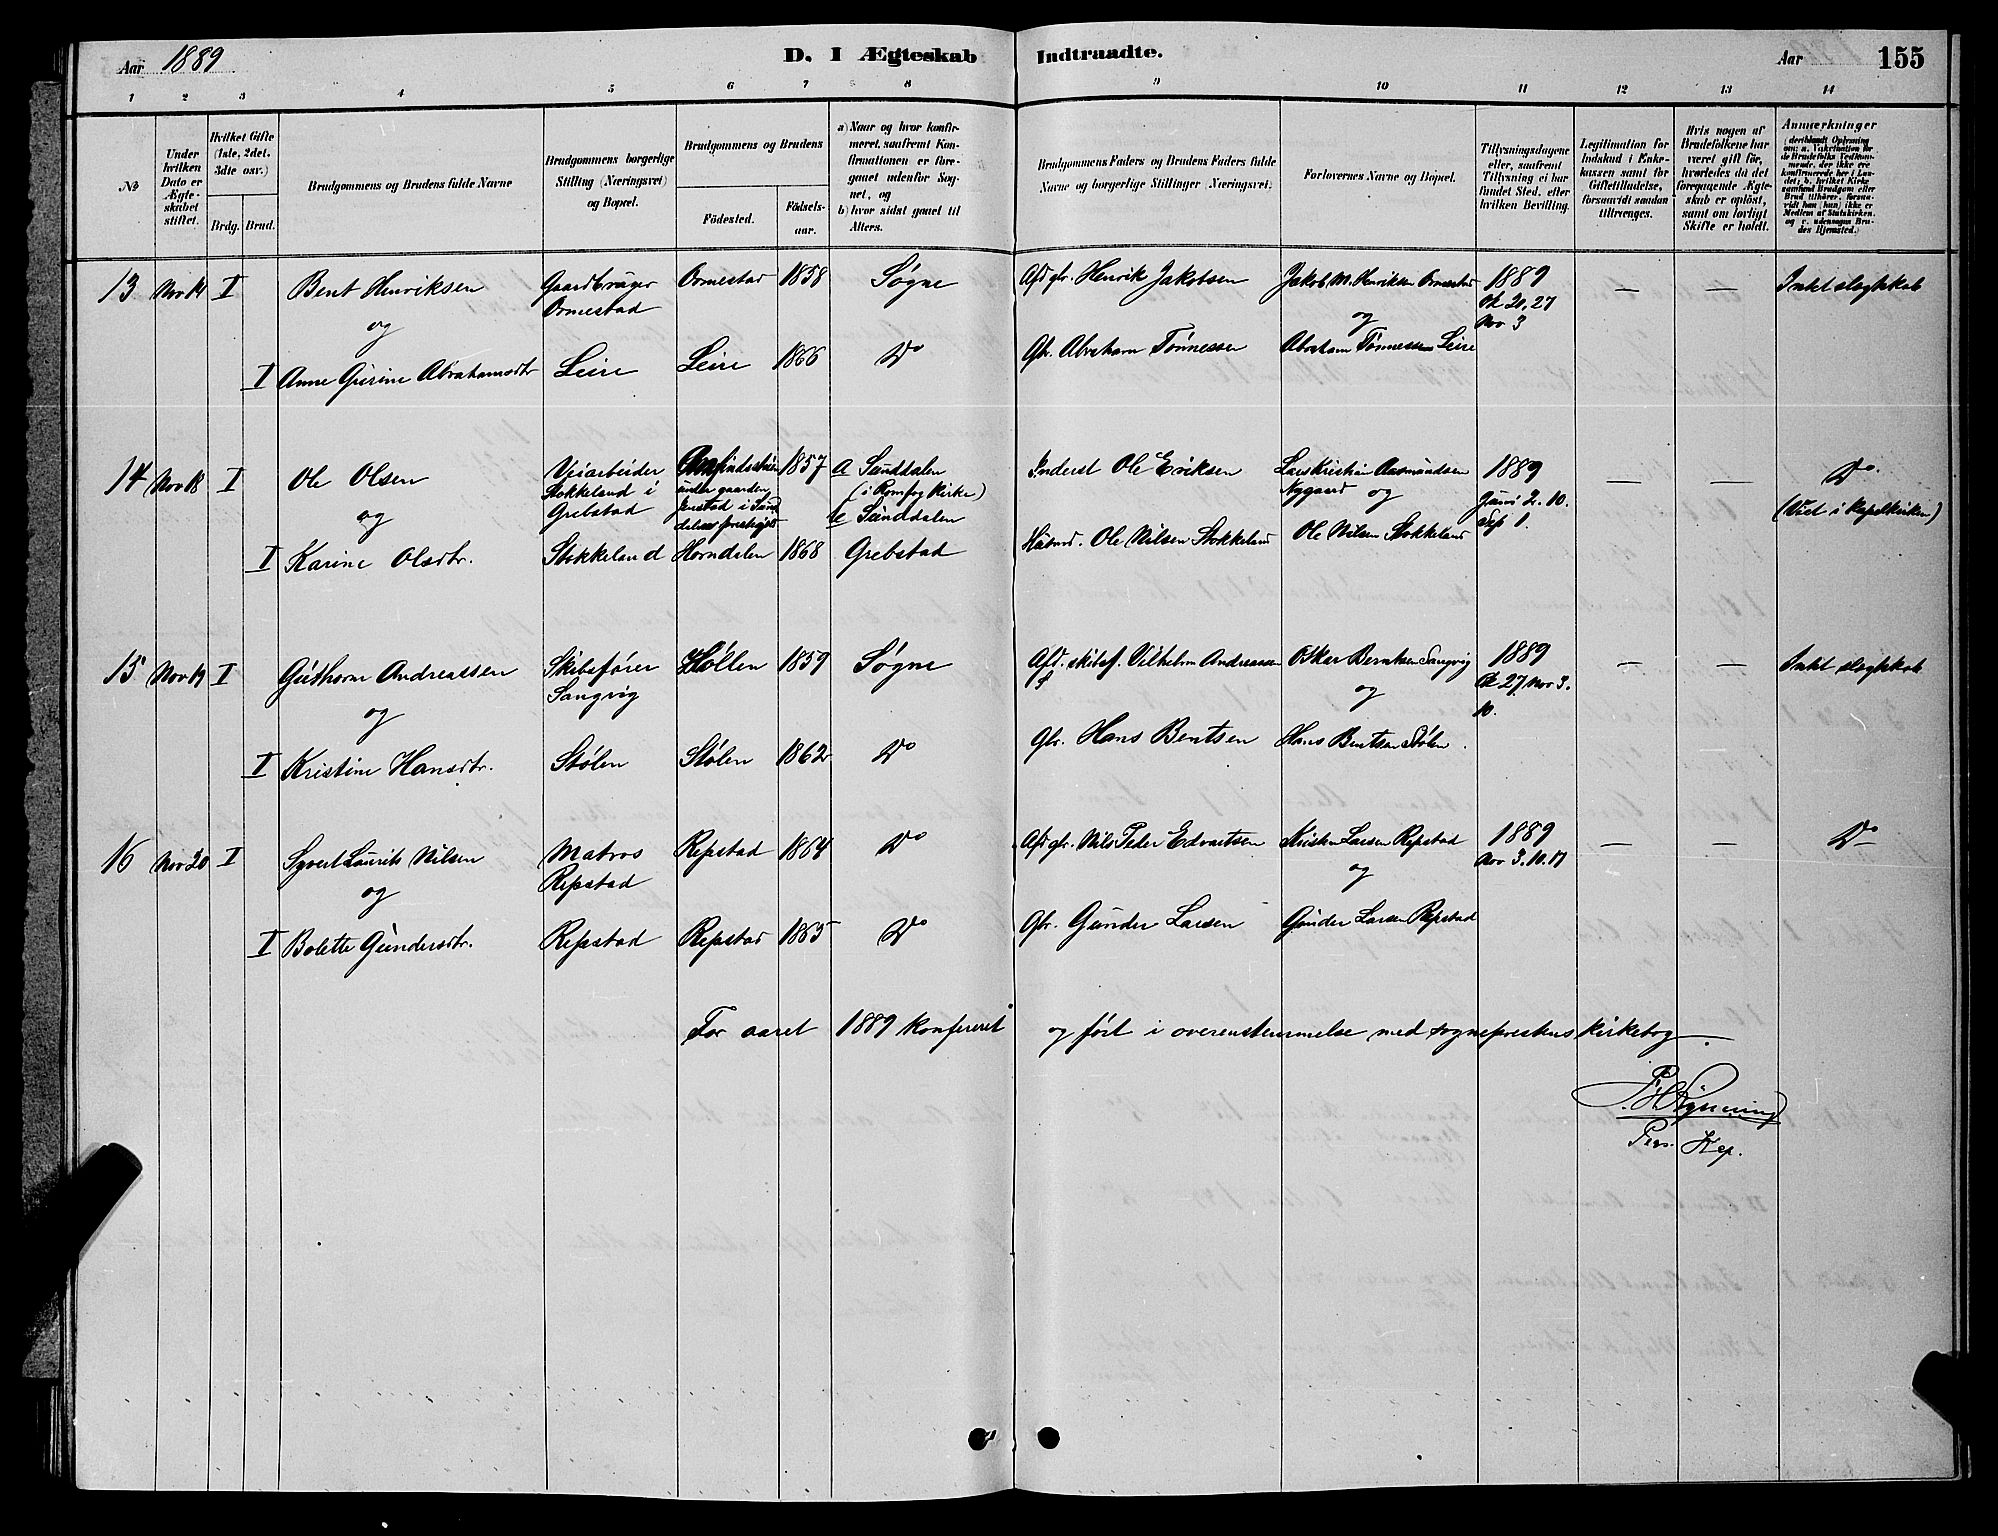 Aar 1889
D. I Ægteskab Indtraadte.
Aar
155
1 2 3 4 5 6 7 8 9 10 11 12 13 14
No
Under hvilken Dato er Ægteskabet stiftet.
Hvilket Gifte (1ste, 2det, 3dte osv.)
Brdg. Brud.
Brudgommens og Brudens fulde Navne
Brudgommens borgerlige Stilling (Næringsvei) og Bopæl.
Brudgommens og Brudens
Födested. Födselsaar.
a) Naar og hvor konfirmeret, saafremt Konfirmationen er foregaaet udenfor Sognet, og
b) hvor sidst gaaet til Alters.
Brudgommens Faders og Brudens Faders fulde Navne og borgerlige Stillinger (Næringsvei)
Forlovernes Navne og Bopæl.
Tillysningsdagene eller, saafremt Tillysning ei har fundet Sted, efter hvilken Bevilling.
Legitimation for Indskud i Enkekassen samt for Giftetilladelse, forsaavidt saadan tiltrænges.
Hvis nogen af Brudefolkene har været gift för, hvorledes da det foregaaende Ægteskab er oplöst, samt om lovligt Skifte er holdt.
Anmærkninger
13 Nov 14 I Bent Henriksen Gaardbruger Ormestad Ormestad 1858 Søgne Afd gbr. Henrik Jakobsen Jakob M. Henriksen Ormestad 1889 Ok 20, 27 Nov 3 — — Intet slegtskab
og og
I Anne Gurine Abrahamsdtr Leire Leire 1866 Do Gbr. Abraham Tønnessen Abraham Tønnessen Leire
14 Nov 18 I Ole Olsen Veiarbeider Stokkeland i Grebstad
under gaarden
1857 a Sunddalen (i Romfog kirke) Inderst Ole Eriksen Lars Kristian Aasmundsen Nygaard og 1889 Juni 2. 10. Sep 1. — — Do
og b Sunddalen
I Karine Olsdtr. Stokkeland Horndalen 1868 Grebstad Husmd. Ole Nilsen Stokkeland Ole Nilsen Stokkeland
15 Nov 19 I Guthorm Andreassen Skibsfører Sangvig Høllen 1859 Søgne Afd. skibsf. Vilhelm Andreassen Oskar Berntsen Sangvig 1889 Ok 27, Nov 3. 10. — — Intet slegtskab
og og
I Kristine Hansdtr. Stølen Stølen 1862 Do Gbr. Hans Bentsen Hans Bentsen Stølen
16 Nov 20 I Syvert Laurits Nilsen Matros Repstad Repstad 1864 Do Afd gbr. Nils Peder Edvartsen Kristen Larsen Repstad 1889 Nov 3. 10. 17 — — Do
og og
I Bolette Gundersdtr. Repstad Repstad 1865 Do Gbr. Gunder Larsen Gunder Larsen Repstad
For aaret 1889 konfereret og ført i overensstemmelse med sogneprestens kirkebog.
Pers. Kap.